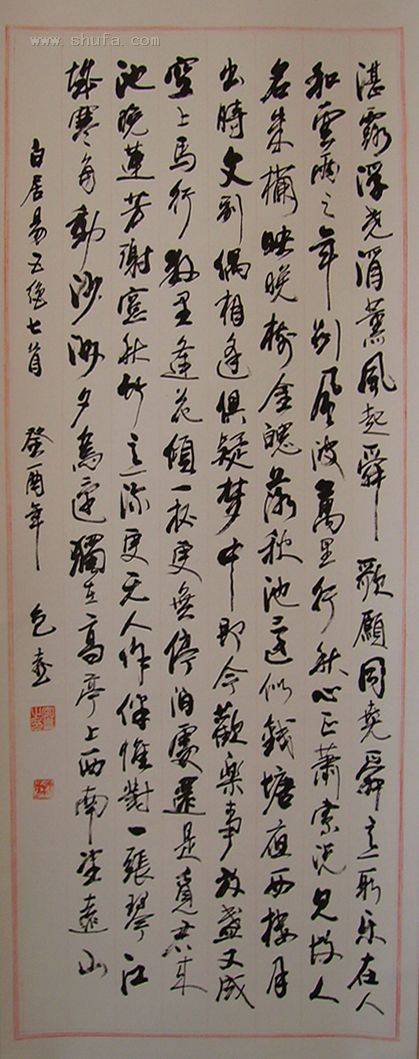 www.shufa.com
湛露浮尧酒薰風起舜歌願同堯舜意所乐在人
和雲雨三年别風波萬里行愁心正蕭索況見故人
名朱檻映晚樹金魄落秋池還似錢塘夜西樓月
出時久别偶相逢俱疑夢中即今歡樂事放盞又成
空上馬行数里逢花傾一杯更無停泊處還是覓君来
池晚蓮芳謝窗秋竹意深更无人作伴惟對一張琴江
城寒角動沙洲夕鳥還獨在高亭上西南望遠山
白居易五绝七首 癸酉年 包